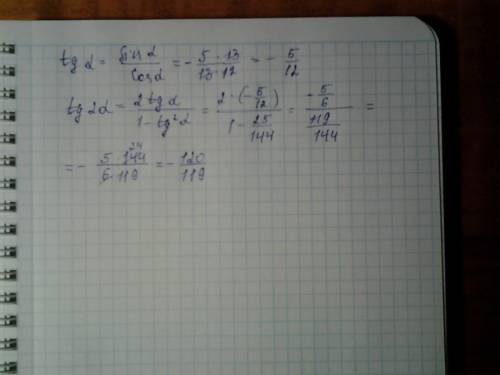 tg α = sin α / cos α = - 5 · 13 / 13 · 12 = - 5/12
tg 2α = 2 tg α / 1 - tg²α = 2 · (- 5/12) / 1 - 25/144 = - 5/6 / 119/144 =
= - 5 · 144 24 / 6 · 119 = - 120/119